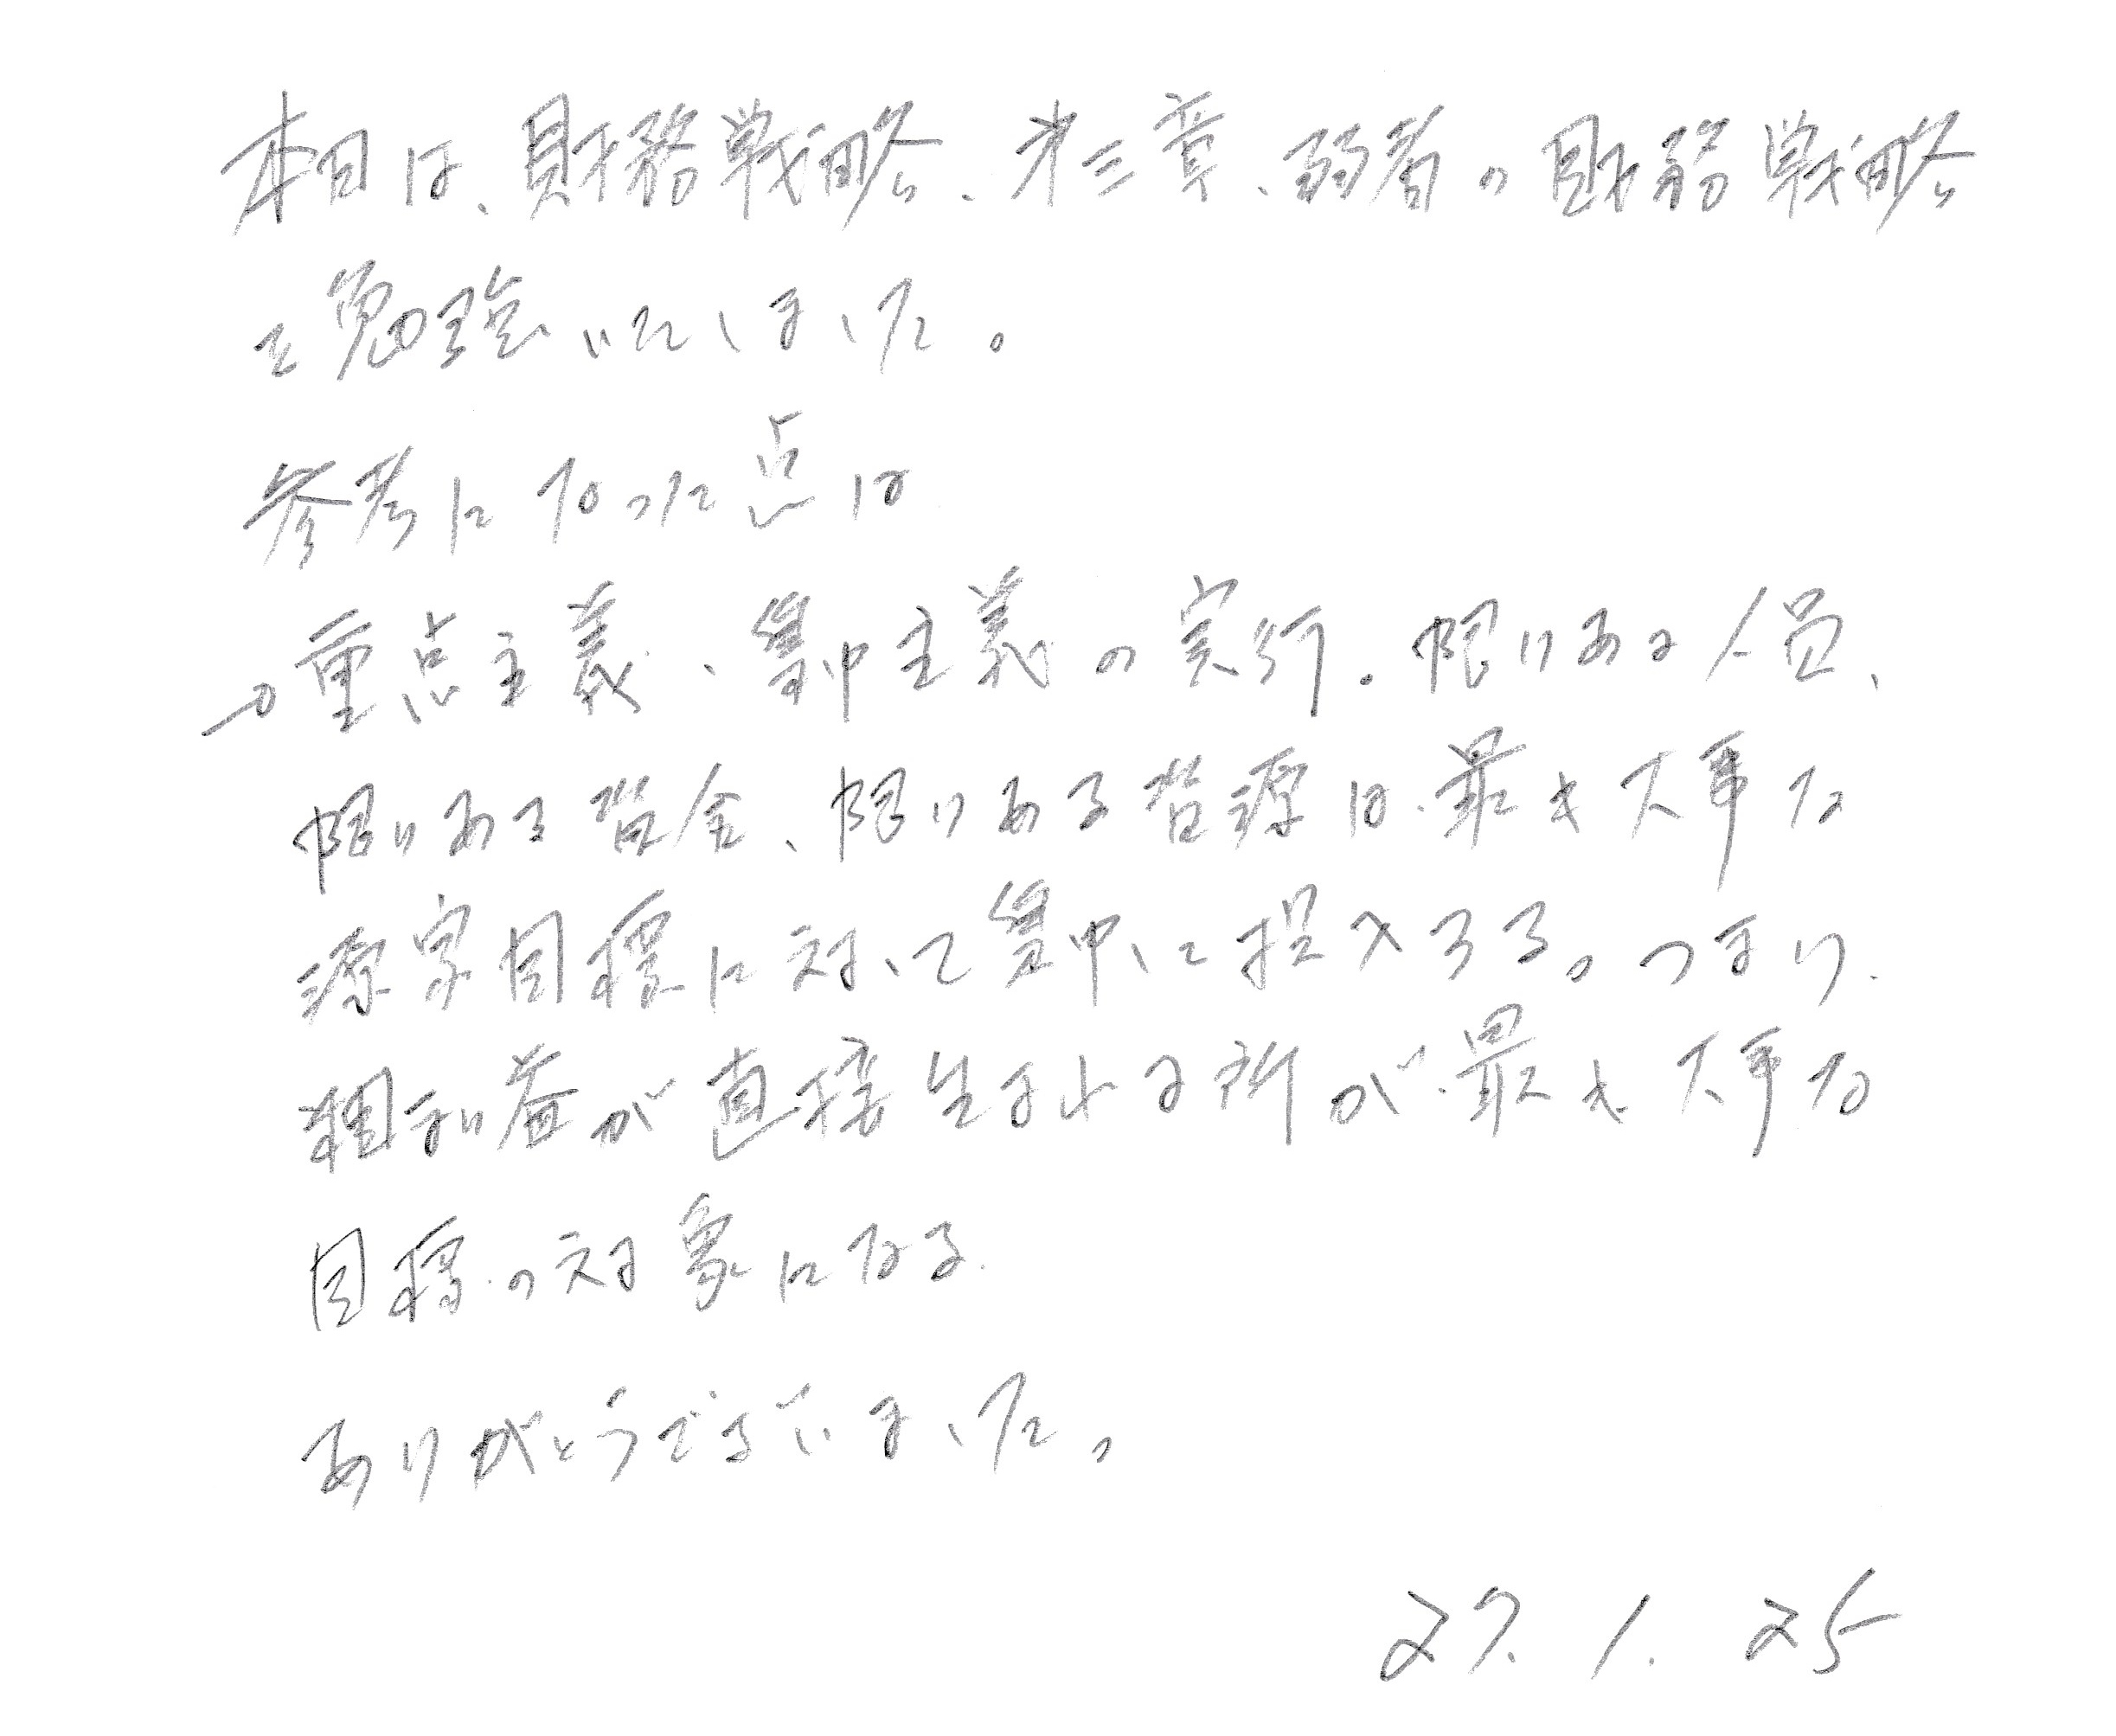 本日は、財務戦略、第三章、弱者の財務戦略
を勉強いたしました。
参考になった点は
→重点主義、集中主義の実行。限りある人員、
限りある資金、限りある資源は、最も大事な
目標に対して集中に投入する。つまり、
粗利益が直接生まれる所が、最も大事な
目標の対象になる
ありがとうございました。
27. 1. 25